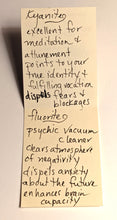 Kyanite
excellent for
meditation &
attunement
points to your
true identity &
fulfilling vocation
dispels fears &
blockages
fluorite
psychic vacuum
cleaner
clears atmosphere
of negativity
dispels anxiety
about the future
enhances brain
capacity